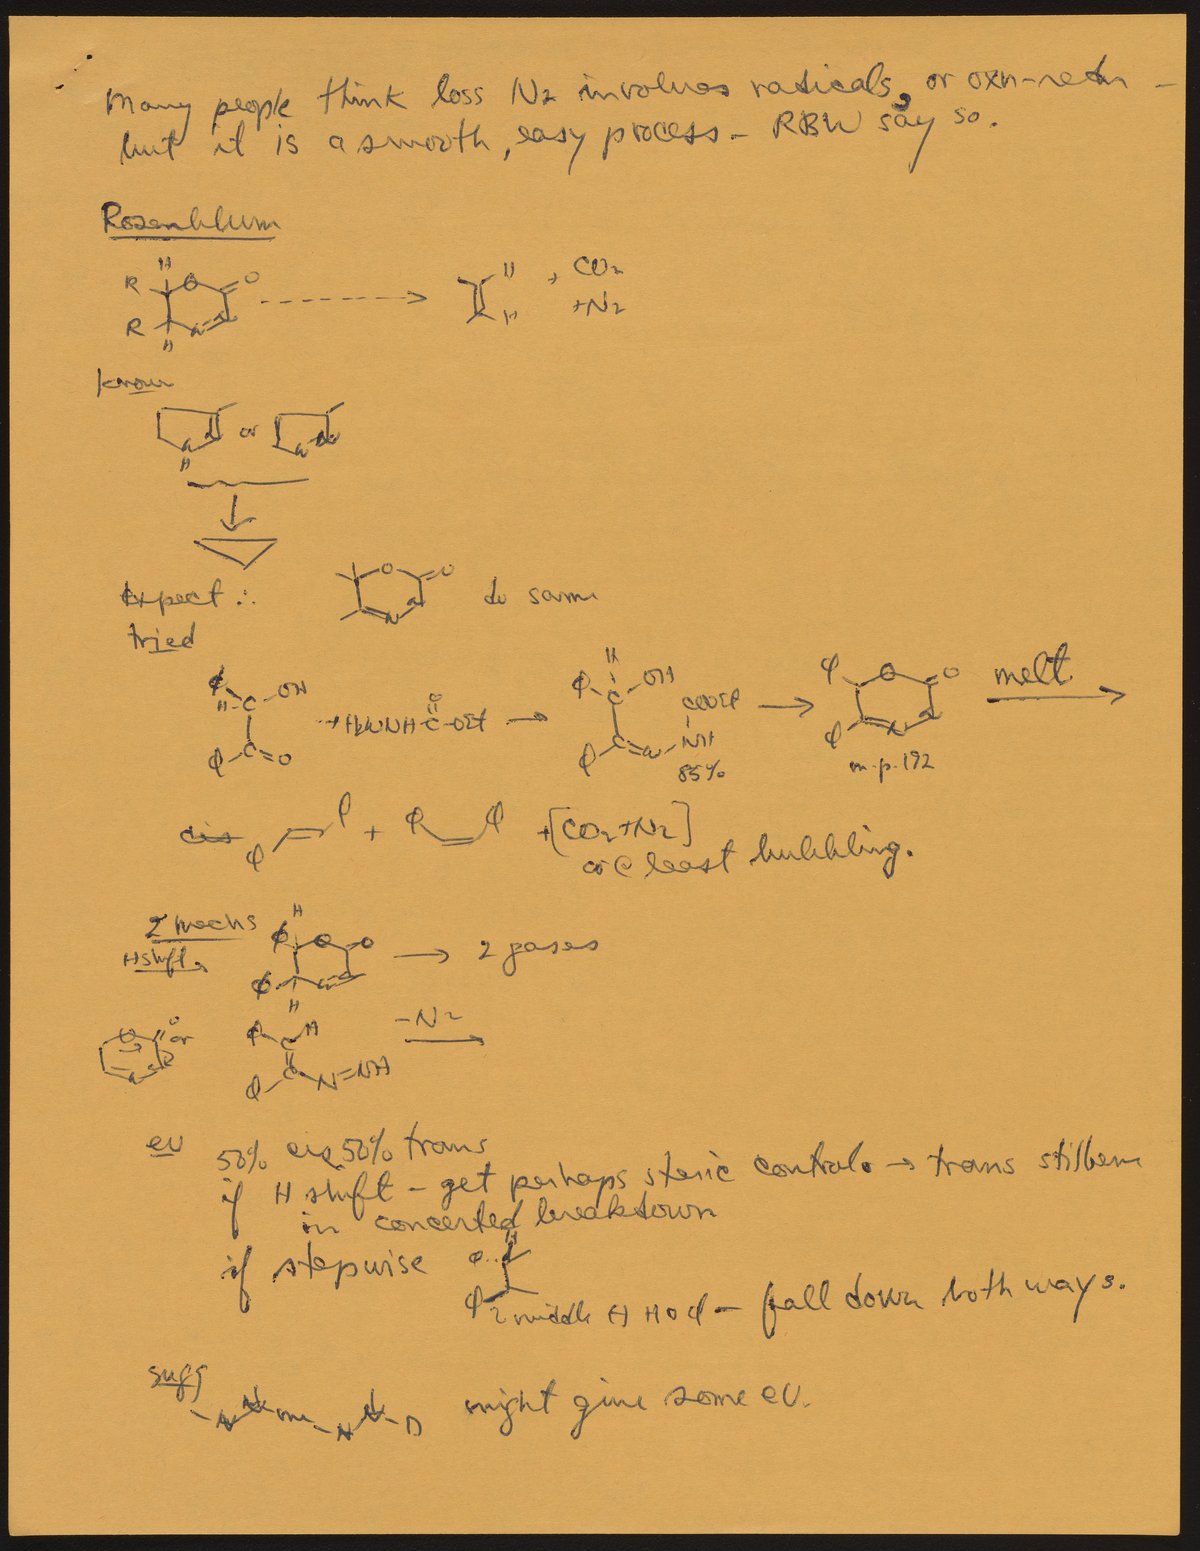 Many people think loss N2 involves radicals, or oxn-redn -
but it is a smooth, easy process - RBW say so.
Rosenblum
H
R O O
R N N
H
H
H
+ CO2
+ N2
know
N N
H
or
N N
Expect ∴
O O
N N
do same
tried
φ H C OH
φ C=O
+ H2NNH-C-OEt
O
H
φ C OH
φ C=N-NH
COOEt
85%
φ O O
φ N N
m.p. 192
melt
cis φ φ + φ φ + [CO2+N2]
or @ least bubbling.
2 mechs
H shift
H
φ O O
φ N N
H
2 gases
O O
N N
or
φ C H
φ C N=NH
-N2
ev
50% cis, 50% trans
if H shift - get perhaps steric control → trans stilbene
in concerted breakdown
if stepwise
φ H
φ
middle H - fall down both ways.
sugg
-N N- me -N N-D might give some ev.